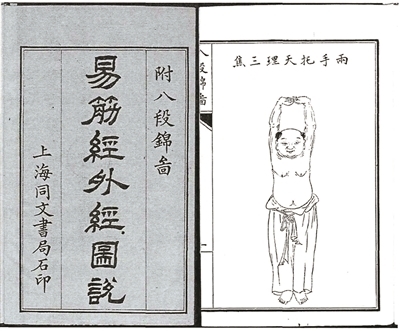 附八段錦啚
易筋經外經圖說
上海同文書局石印
兩手托天理三焦
八段錦啚